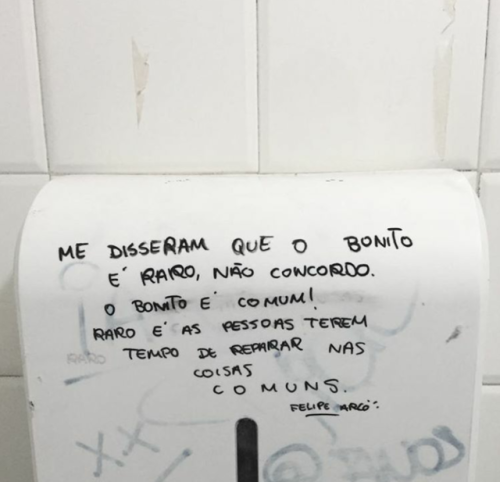 ME DISSERAM QUE O BONITO
É RARO, NÃO CONCORDO.
O BONITO É COMUM!
RARO É AS PESSOAS TEREM
RARO
TEMPO DE REPARAR NAS
COISAS
COMUNS.
FELIPE ARCO
XX